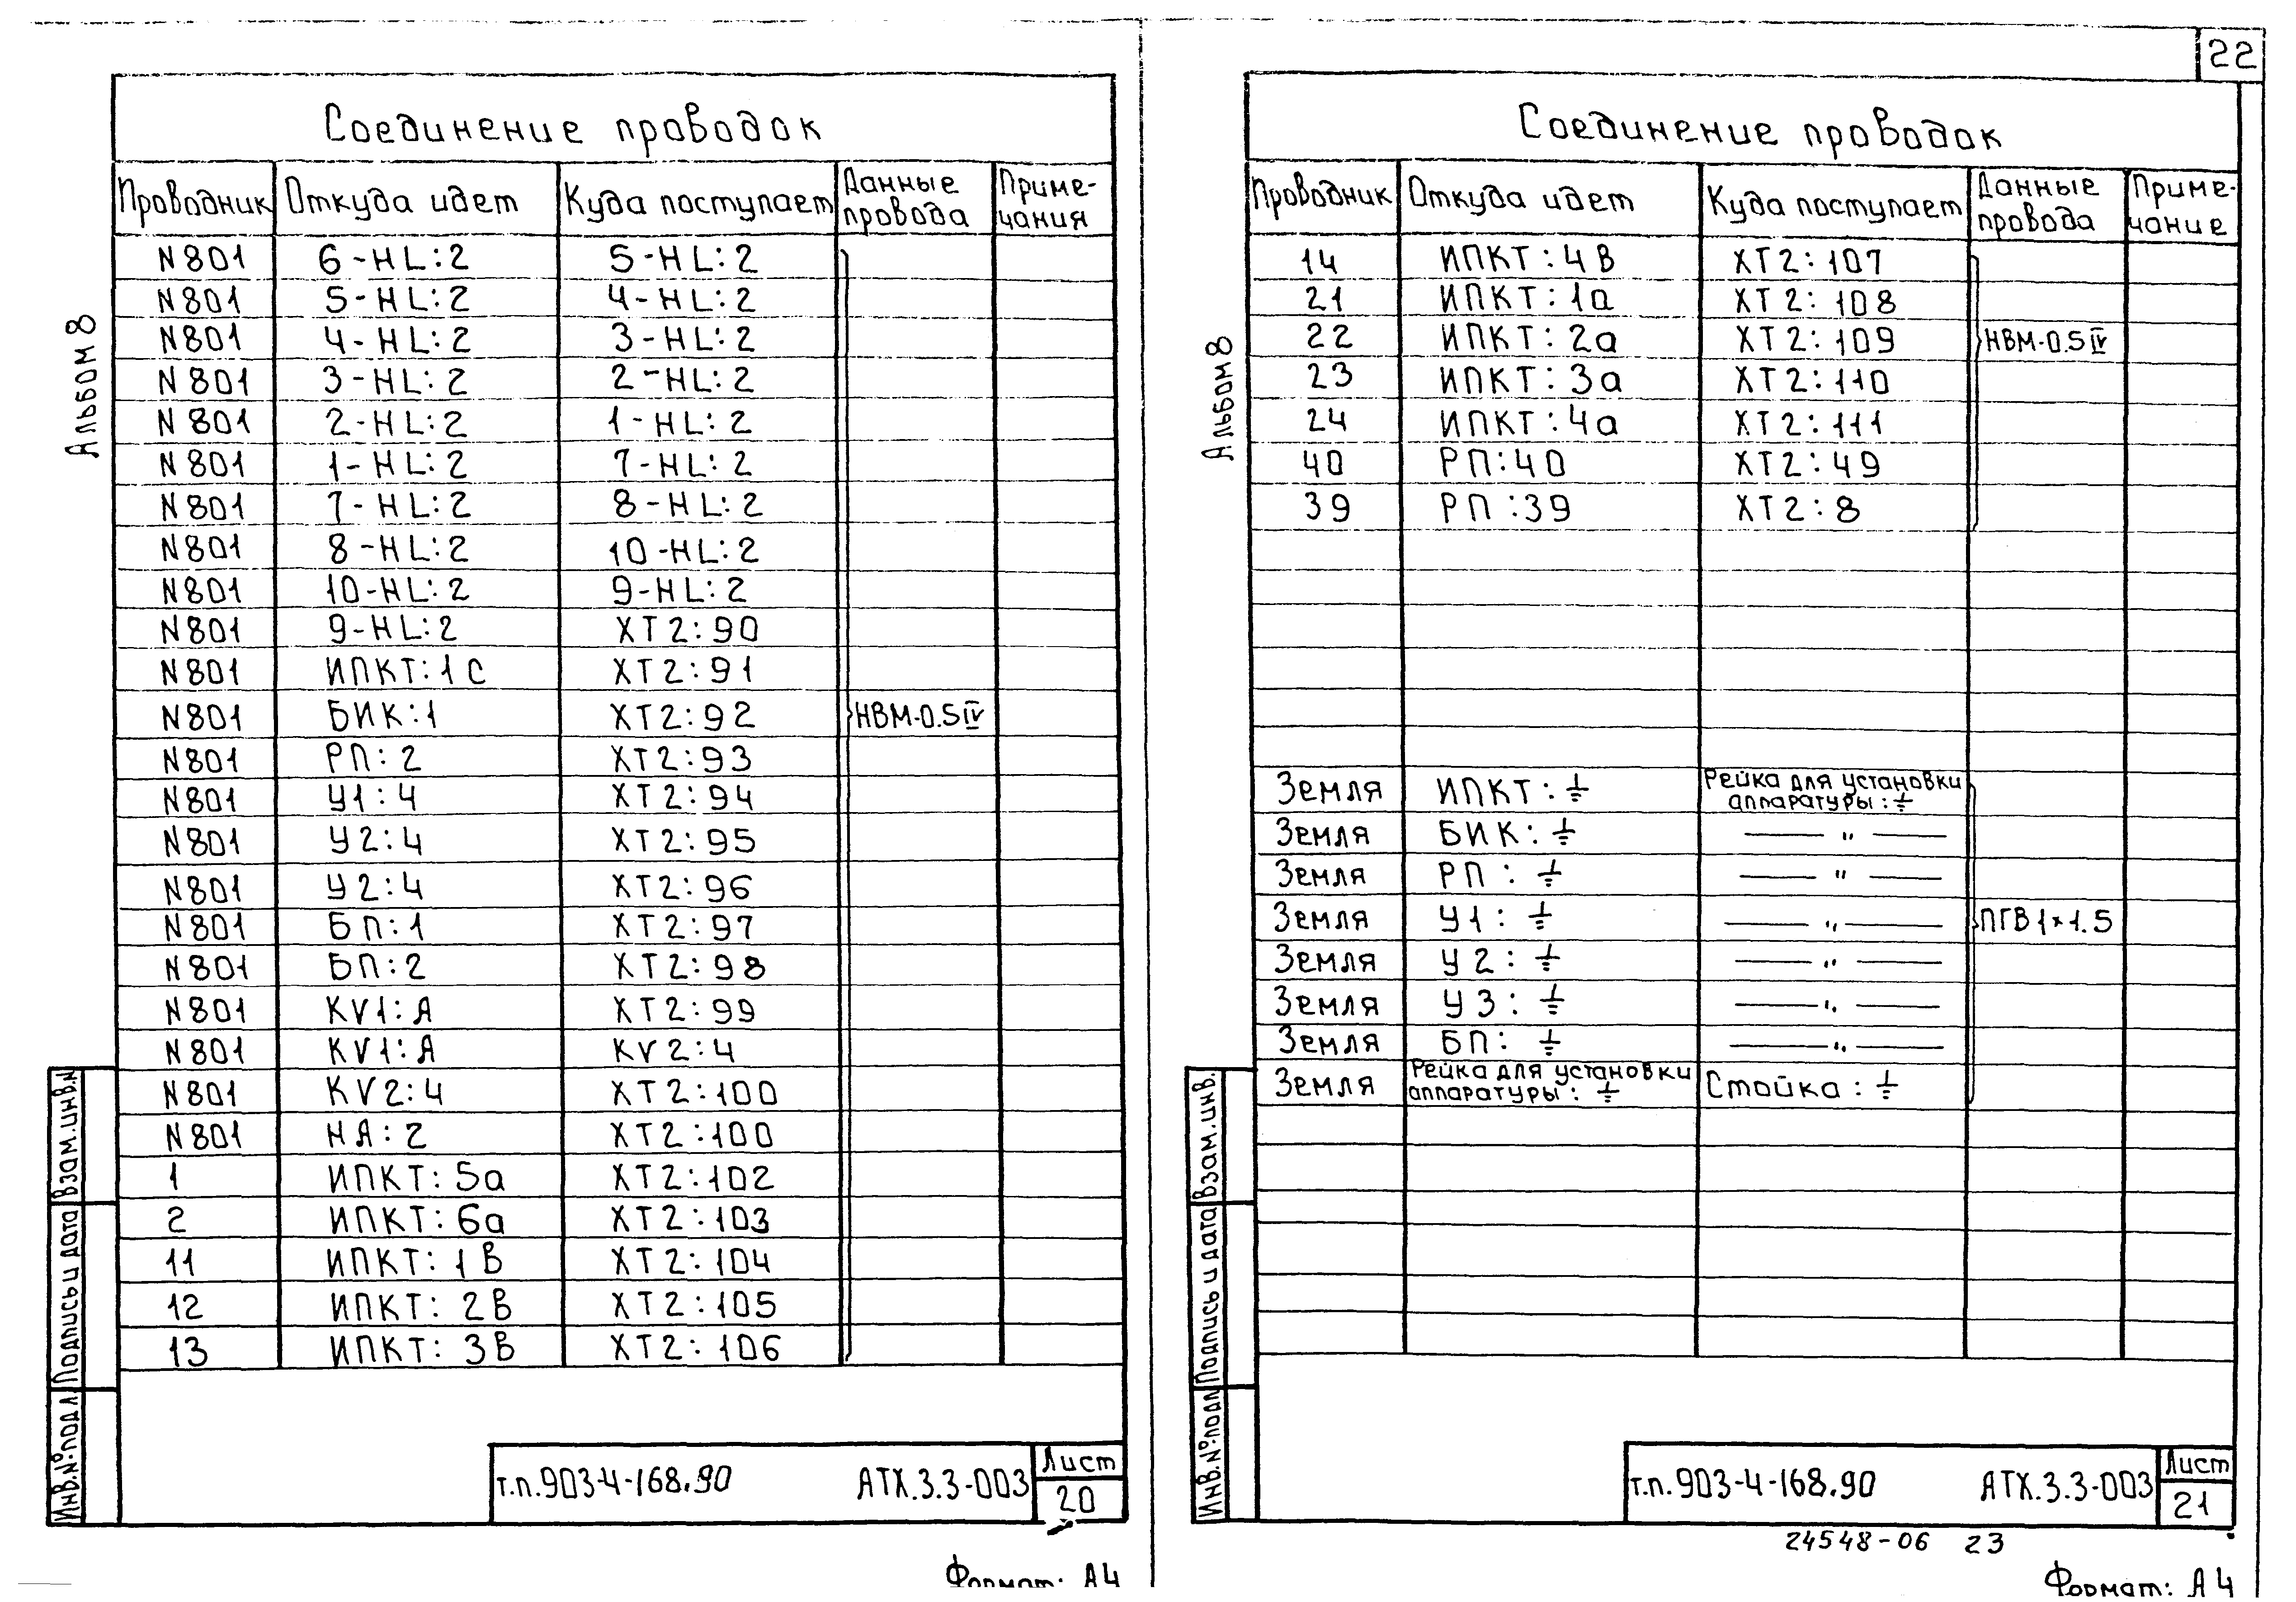 22
Соединение проводок
Проводник Откуда идет Куда поступает Данные провода Приме-чания
N801 6-HL:2 5-HL:2
N801 5-HL:2 4-HL:2
N801 4-HL:2 3-HL:2
N801 3-HL:2 2-HL:2
N801 2-HL:2 1-HL:2
N801 1-HL:2 7-HL:2
N801 7-HL:2 8-HL:2
N801 8-HL:2 10-HL:2
N801 10-HL:2 9-HL:2
N801 9-HL:2 ХТ2:90
N801 ИПКТ:1С ХТ2:91
N801 БИК:1 ХТ2:92 НВМ-0.5 IV
N801 РП:2 ХТ2:93
N801 У1:4 ХТ2:94
N801 У2:4 ХТ2:95
N801 У2:4 ХТ2:96
N801 БП:1 ХТ2:97
N801 БП:2 ХТ2:98
N801 KV1:А ХТ2:99
N801 KV1:А KV2:4
N801 KV2:4 ХТ2:100
N801 НА:2 ХТ2:100
1 ИПКТ:5а ХТ2:102
2 ИПКТ:6а ХТ2:103
11 ИПКТ:1В ХТ2:104
12 ИПКТ:2В ХТ2:105
13 ИПКТ:3В ХТ2:106
Альбом 8
Взам.инв.N
Подпись и дата
Инв.№подл
т.п.903-4-168.90 АТХ.3.3-003 Лист
20
Формат: А4
Соединение проводок
Проводник Откуда идет Куда поступает Данные провода Приме-чание
14 ИПКТ:4В ХТ2:107
21 ИПКТ:1а ХТ2:108
22 ИПКТ:2а ХТ2:109 НВМ-0.5 IV
23 ИПКТ:3а ХТ2:110
24 ИПКТ:4а ХТ2:111
40 РП:40 ХТ2:49
39 РП:39 ХТ2:8
Земля ИПКТ:⏚ Рейка для установки аппаратуры:⏚
Земля БИК:⏚ — " —
Земля РП:⏚ — " —
Земля У1:⏚ — " — ПГВ1×1.5
Земля У2:⏚ — " —
Земля У3:⏚ — " —
Земля БП:⏚ — " —
Земля Рейка для установки аппаратуры:⏚ Стойка:⏚
Альбом 8
Взам.инв.
Подпись и дата
Инв.№подл
т.п.903-4-168.90 АТХ.3.3-003 Лист
21
24548-06 23
Формат: А4